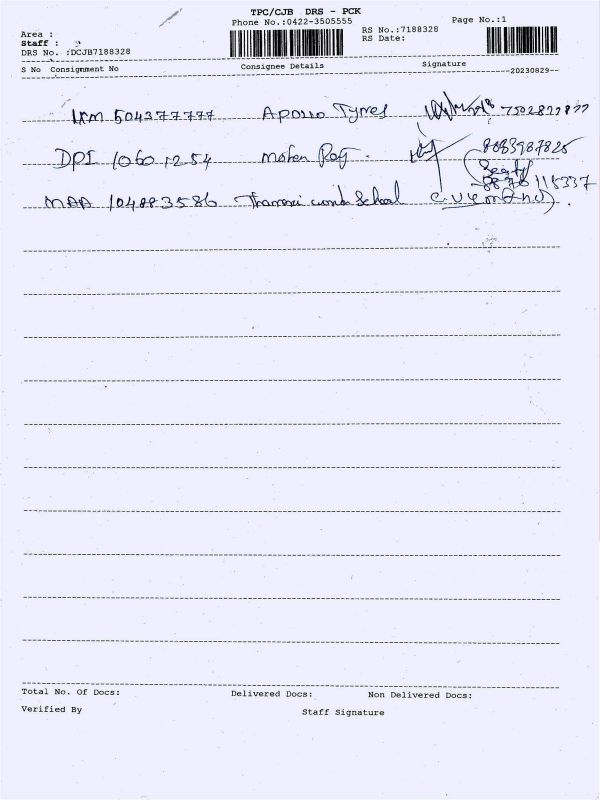 TPC/CJB DRS - PCK
Phone No.:0422-3505555
Page No.:1
Area :
RS No.:7188328
Staff :
RS Date:
DRS No. :DCJB7188328
S No Consignment No Consignee Details Signature
--20230829--
504377777 Apollo Tyres
DPI 106011254 Mohan Raj . 8083987825
MAA 104883586 School
Total No. Of Docs: Delivered Docs: Non Delivered Docs:
Verified By Staff Signature